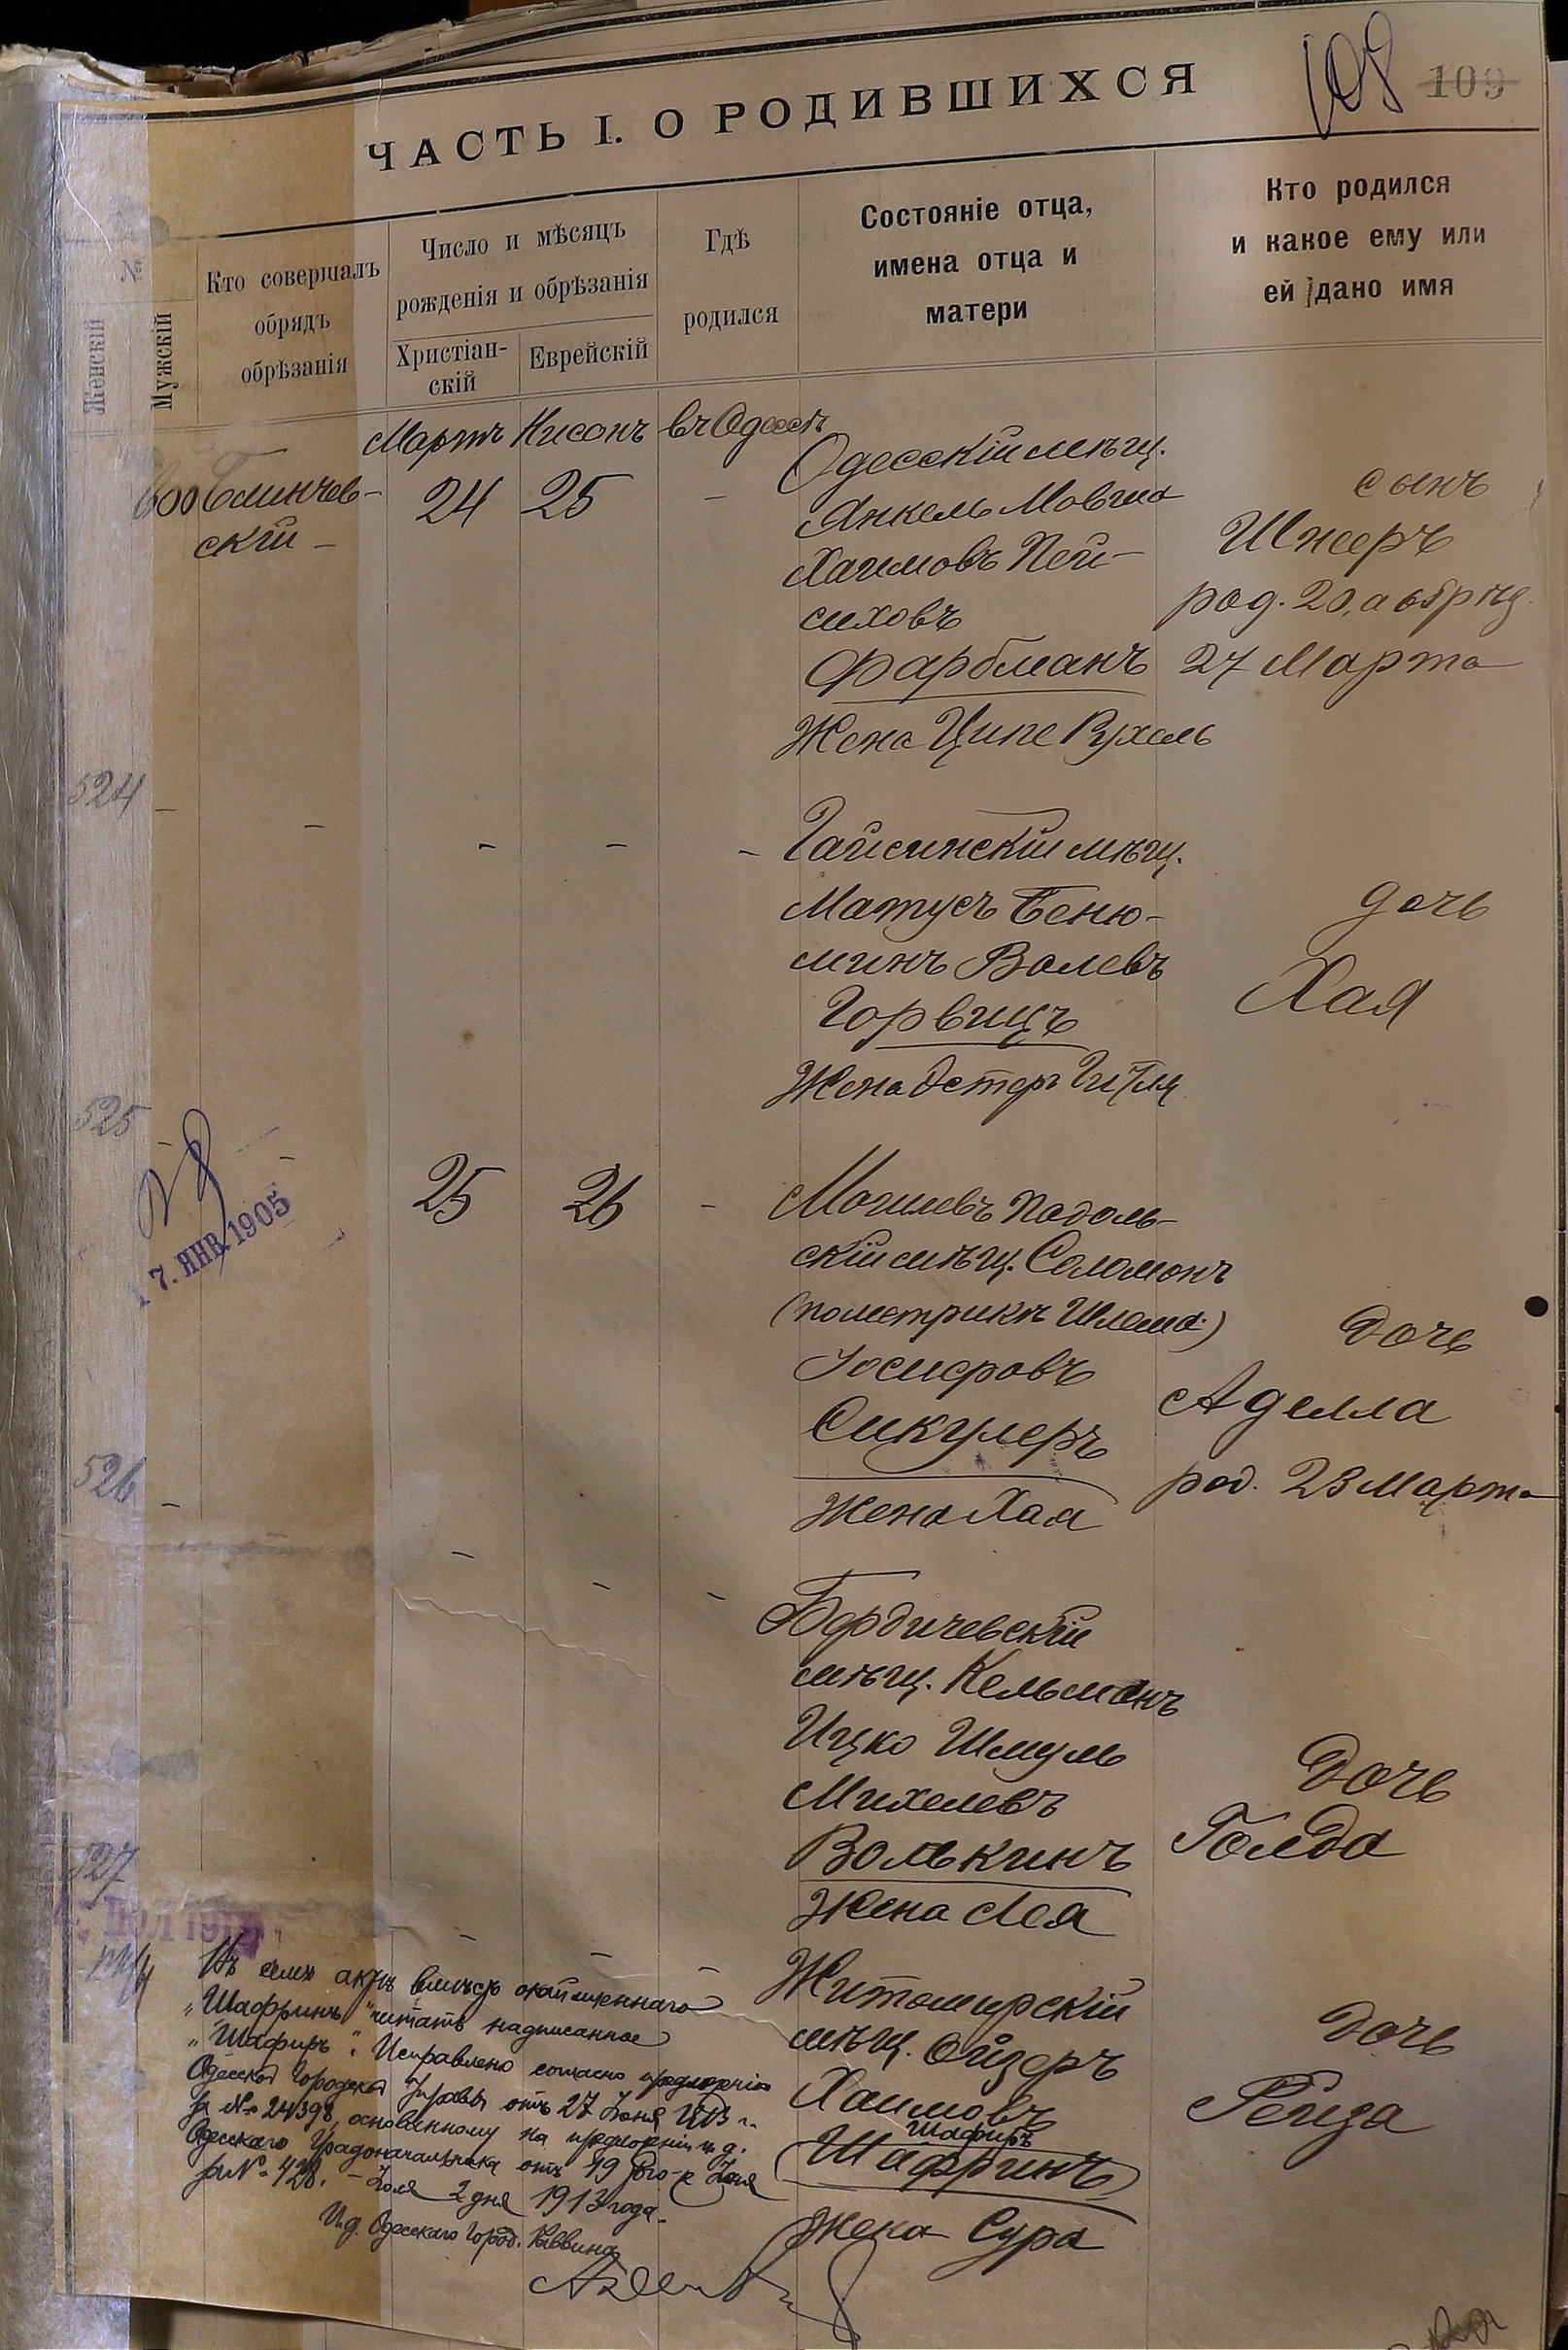 108 109
ЧАСТЬ I. О РОДИВШИХСЯ
№
Женскій
Мужскій
Кто совершалъ
обрядъ
обрѣзанія
Число и мѣсяцъ
рожденія и обрѣзанія
Христіан-
скій
Еврейскій
Гдѣ
родился
Состояніе отца,
имена отца и
матери
Кто родился
и какое ему или
ей дано имя
Мартъ Нисонъ въ Одессѣ
600 Блинчев-
скій –
24 25 –
Одесскій мѣщ.
Анкель Мовша
Хаимовъ Пей-
сиховъ
Фарбманъ
Жена Ципе Рухель
сынъ
Шнееръ
род. 20, а обрѣз.
27 Марта
524 – – – – –
Гайсинскій мѣщ.
Матусъ Беню-
минъ Волевъ
Горвицъ
Жена Эстеръ Гитля
дочь
Хая
525 – –
17. ЯНВ 1905
25 26 –
Могилевъ Подоль-
скій мѣщ. Соломонъ
(по метрикѣ Шлема)
Іосифовъ
Сикулеръ
Жена Хая
дочь
Аделла
род. 23 Марта
526 – – – –
Бердичевскій
мѣщ. Кельманъ
Ицко Шмуль
Михелевъ
Волькинъ
Жена Лея
дочь
Голда
527 – – –
Житомирскій
мѣщ. Ойзеръ
Хаимовъ
Шафиръ
(Шафринъ)
Жена Сура
дочь
Рейза
Въ семъ актѣ вмѣсто окаймленнаго
„Шафринъ" читать надписанное
„Шафиръ". Исправлено согласно предложенію
Одесской Городской Управы отъ 27 Іюня 1913 г.
за № 24398, основанному на предложеніи и. д.
Одесскаго Градоначальника отъ 19 того-же Іюня
за № 428. – Іюля 2 дня 1913 года.
И. д. Одесскаго Город. Раввина